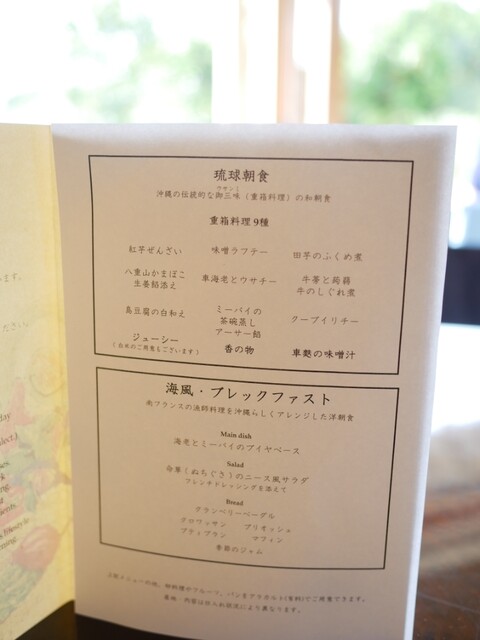 琉球朝食
ウサンミ
沖縄の伝統的な御三味（重箱料理）の和朝食
重箱料理9種
紅芋ぜんざい　味噌ラフテー　田芋のふくめ煮
八重山かまぼこ
生姜餡添え
車海老とウサチー
牛蒡と蒟蒻
牛のしぐれ煮
島豆腐の白和え
ミーバイの
茶碗蒸し
アーサー餡
クーブイリチー
ジューシー
（白米のご用意もございます）
香の物
車麩の味噌汁
海風・ブレックファスト
南フランスの漁師料理を沖縄らしくアレンジした洋朝食
Main dish
海老とミーバイのブイヤベース
Salad
命草（ぬちぐさ）のニース風サラダ
フレンチドレッシングを添えて
Bread
クランベリーベーグル
クロワッサン　ブリオッシュ
プティブラン　マフィン
季節のジャム
上記メニューの他、卵料理やフルーツ、パンをアラカルト(有料)でご用意できます。
食材・内容は仕入れ状況により異なります。
ます。
ださい。
day
lect.)